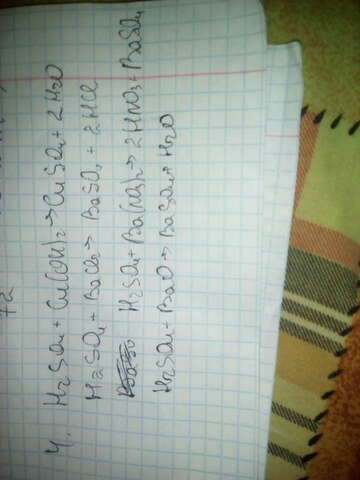 4. H2SO4 + Cu(OH)2 → CuSO4 + 2H2O
H2SO4 + BaCl2 → BaSO4 + 2HCl
H2SO4 + Ba(NO3)2 → 2HNO3 + BaSO4
H2SO4 + BaO → BaSO4 + H2O